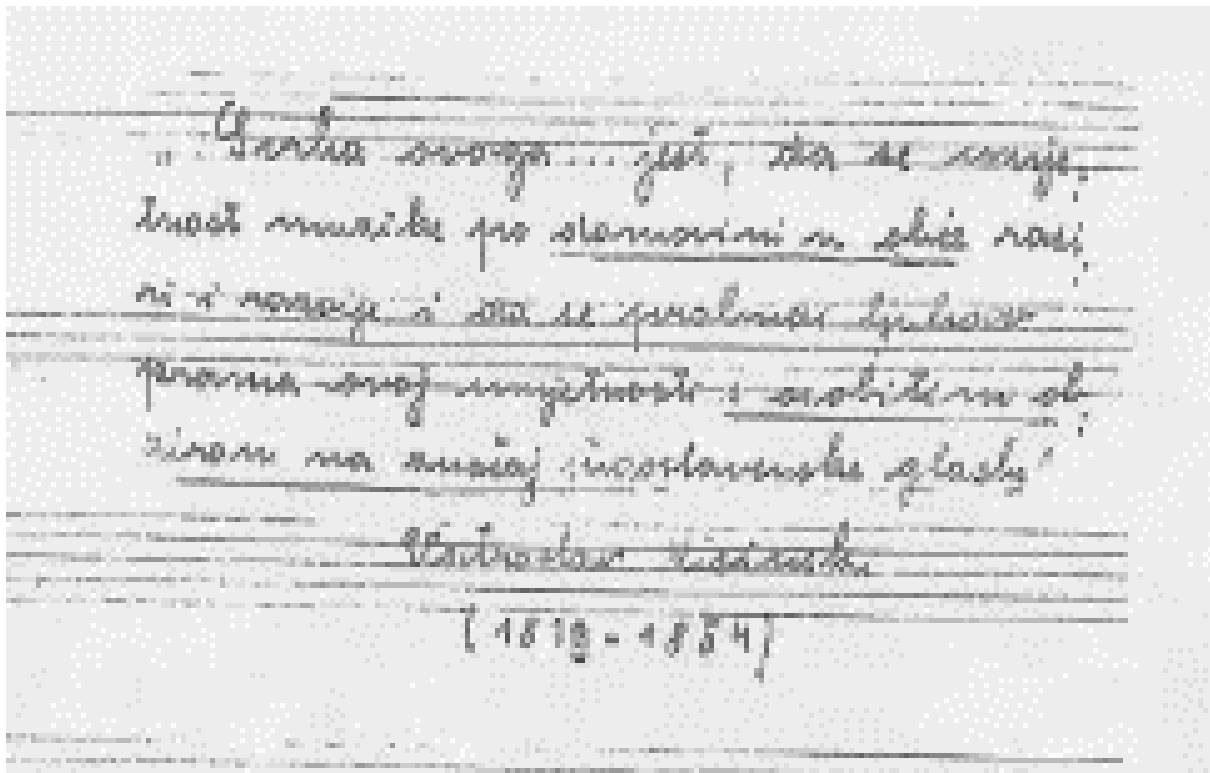 „Svrha ovoga... jest, da se umje-
tnost muzike po domovini u obće raši-
ri i razvije i da se probudi ljubav
prama ovoj umjetnosti s osobitim ob-
zirom na jugoslavenske glasbe"
Vatroslav Lisinski
(1819 - 1854)